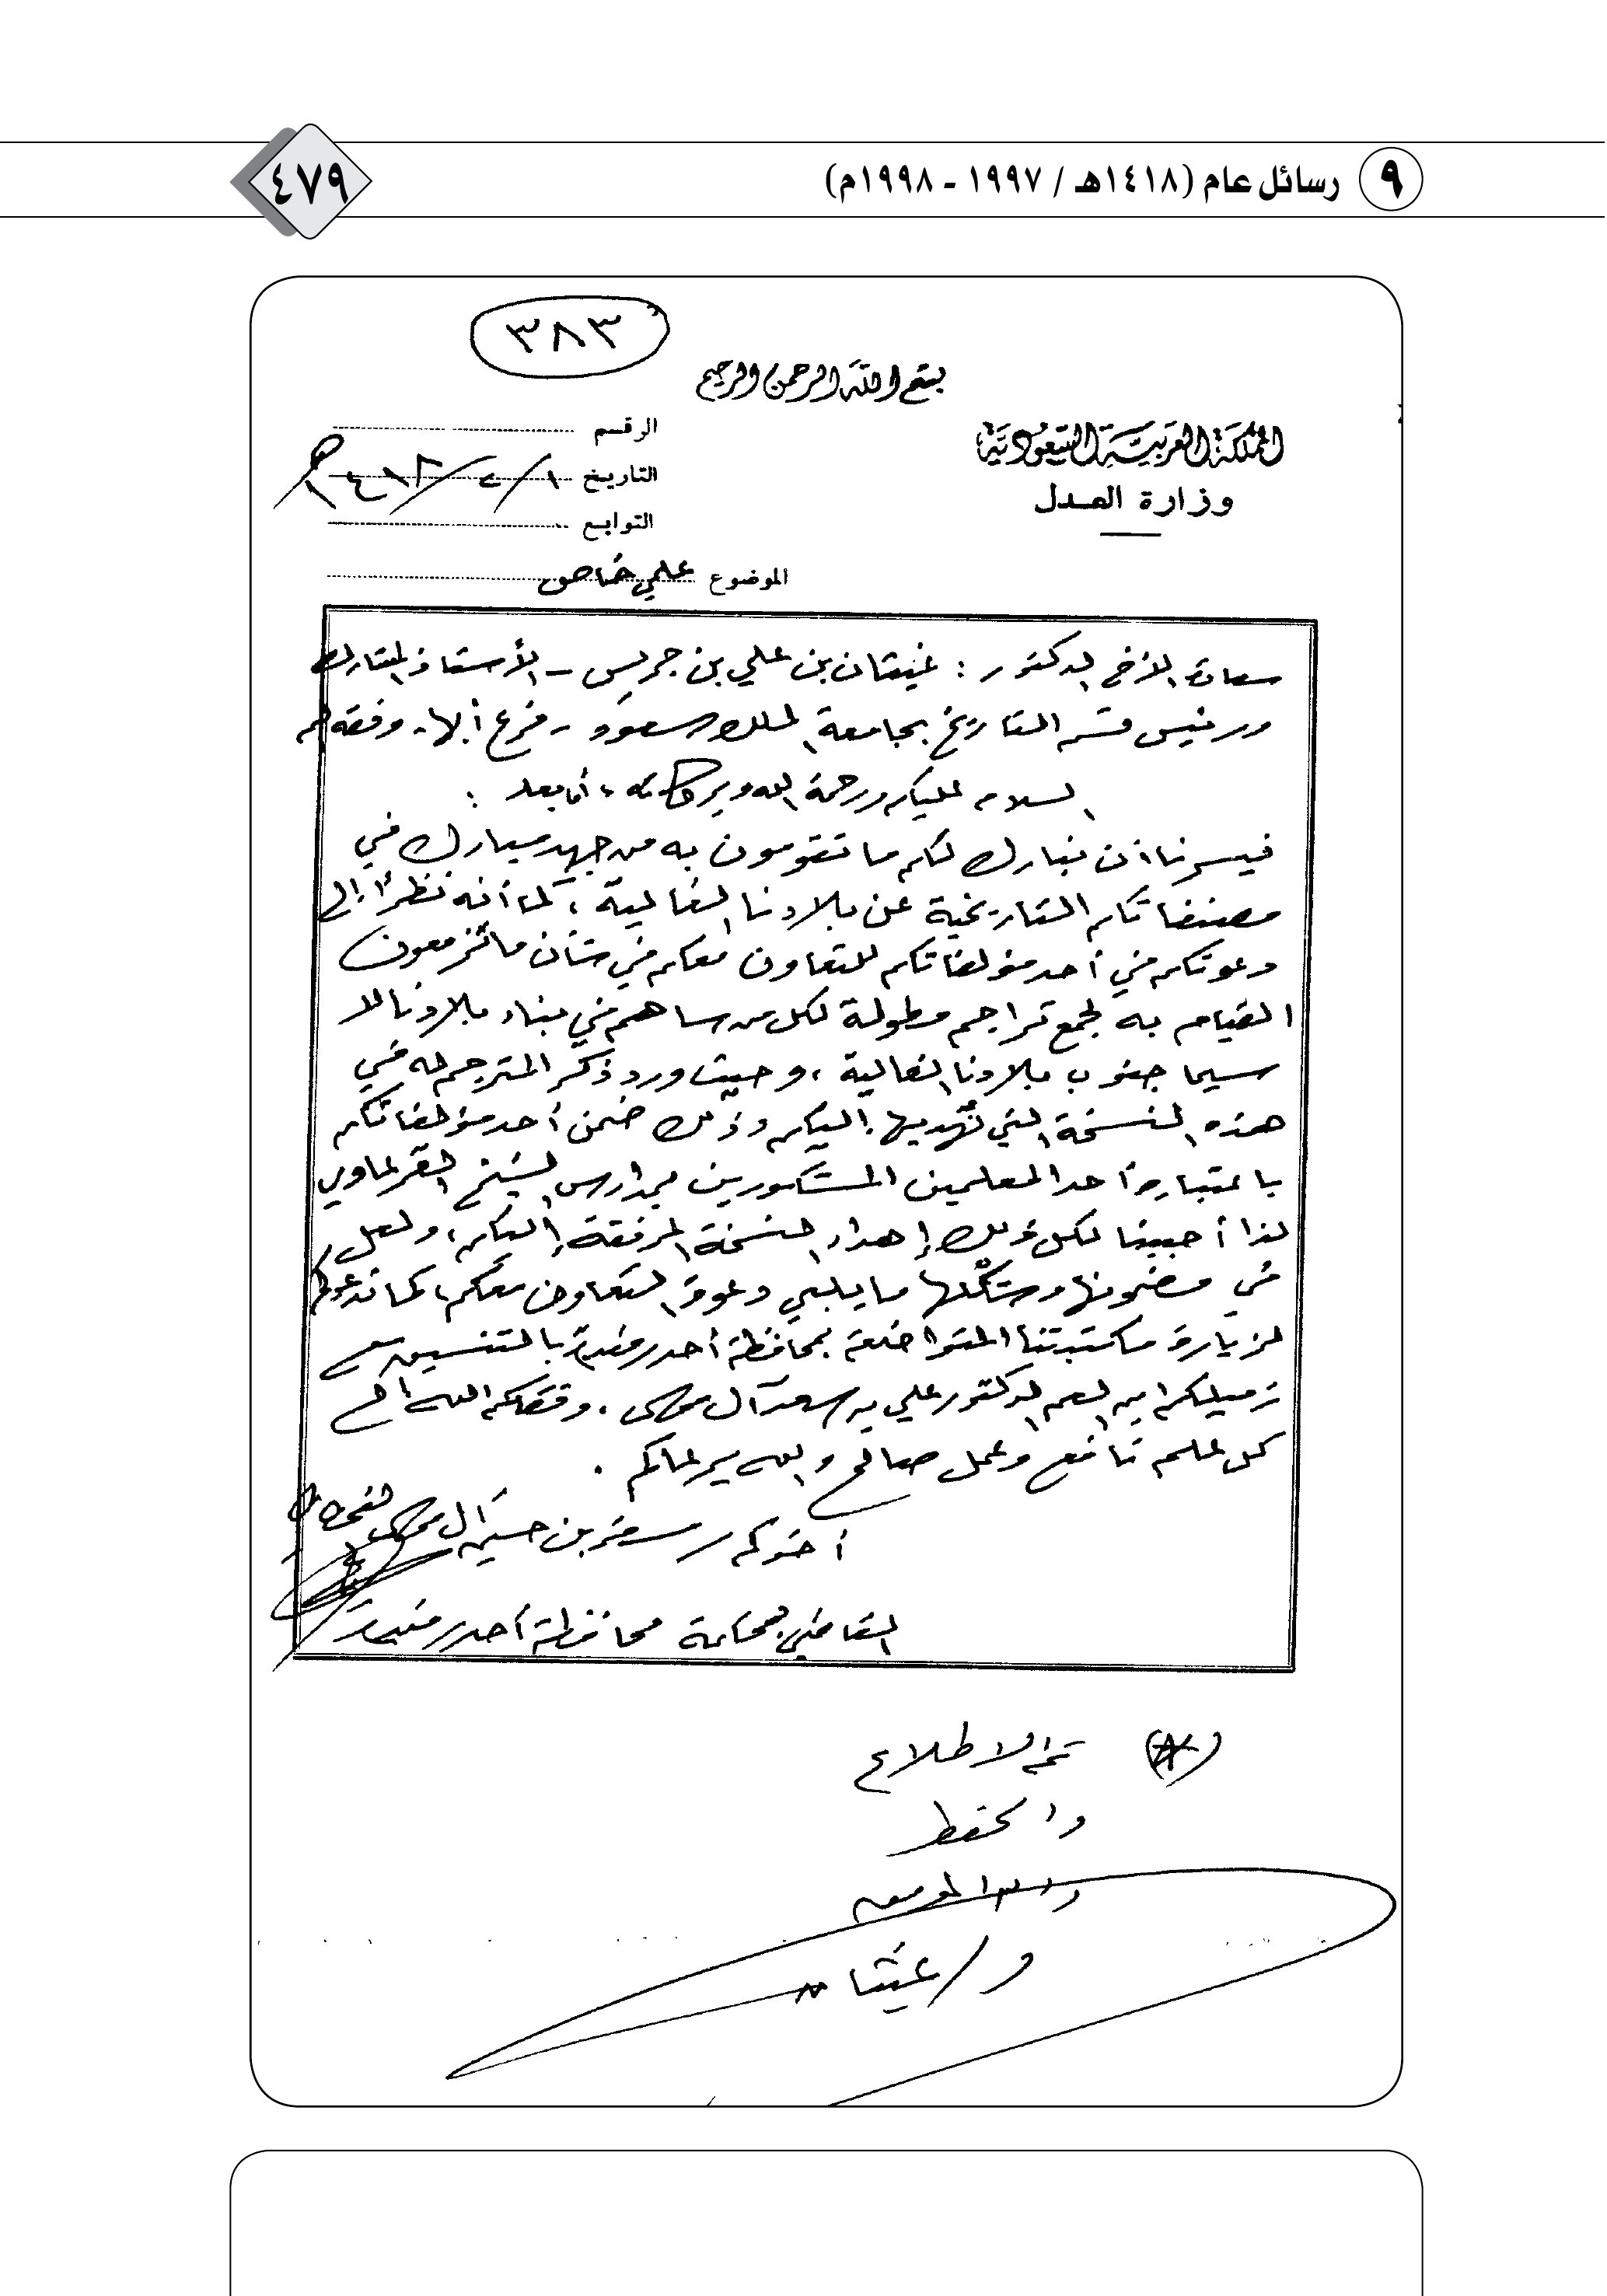 ٩ رسائل عام (١٤١٨هـ / ١٩٩٧ - ١٩٩٨م)
٤٧٩
٣٨٣
بسم الله الرحمن الرحيم
المملكة العربية السعودية
وزارة العدل
الرقم
التاريخ ١ / ٢ / ١٤١٨هـ
التوابع
الموضوع علمي خاص
سعادة الأخ الدكتور : غيثان بن علي بن جريس - الأستاذ المشارك
ورئيس قسم التاريخ بجامعة الملك سعود - فرع أبها - وفقه الله
السلام عليكم ورحمة الله وبركاته ، أما بعد :
فيسرنا أن نبارك لكم ما تقومون به من جهد مبارك في
مصنفاتكم التاريخية عن بلادنا الغالية ، كما أنه نظراً إلى
دعوتكم في أحد مؤلفاتكم للتعاون معكم في شأن ما تزمعون
القيام به لجمع تراجم مطولة لكل من ساهم في بناء بلادنا لا
سيما جنوب بلادنا الغالية ، وحيث ورد ذكر المترجم له في
هذه النسخة التي نهديها إليكم وذلك ضمن أحد مؤلفاتكم
باعتباره أحد المعلمين المشهورين بمدارس الشيخ القرعاوي
لذا أحببنا لكل ذلك إهداء النسخة المرفقة إليكم ، ولعل
في مضمونها وشكلها ما يلبي دعوة التعاون معكم ، كما ندعوكم
لزيارة مكتبتنا المتواضعة بمحافظة أحد رفيدة بالتنسيق مع
زميلكم ابن العم الدكتور علي بن سعد آل موسى . وفقكم الله إلى
كل علم نافع وعمل صالح والله يرعاكم .
أخوكم / سفر بن حسين آل موسى القحطاني
القاضي بمحكمة محافظة أحد رفيدة
(*) تم الاطلاع
والحفظ
والله الموفق
د / غيثان